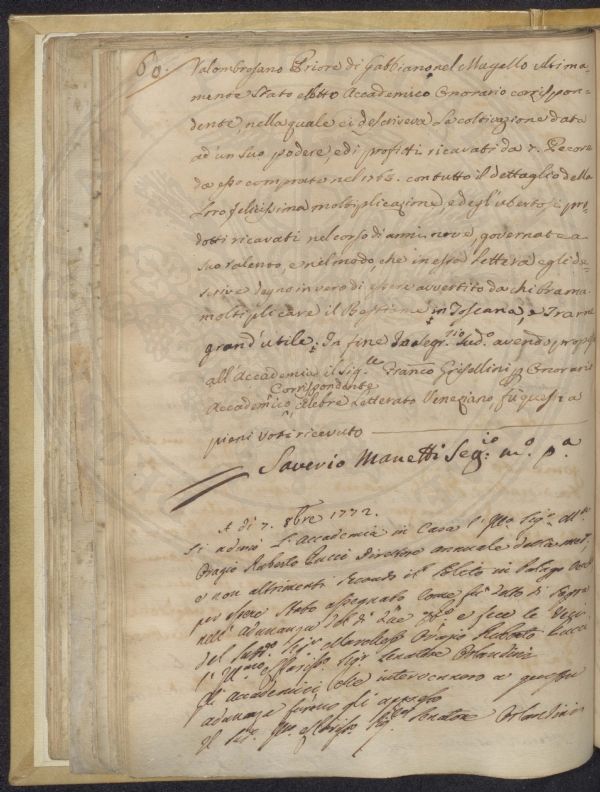 60.
Valombrosano Priore di Gabbiano nel Mugello ultima-
mente Stato eletto Accademico Onorario corrispon-
dente, nella quale ci descriveva la coltivazione data
ad un suo podere, e di profitti ricavati da 7. Pecore
da esso comprate nel 1763. con tutto il dettaglio della
loro felicissima moltiplicazione, e degl'ubertosi pro-
dotti ricavati nel corso di anni nove, governate a
suo talento, e nel modo, che in essa lettera egli de-
scrive degno in vero di essere avvertito da chi brama
moltiplicare il Bestiame in Toscana, e Trarne
grand'utile. In fine da Segr.rio sud.o avendo propo
all'Accademia il Sig.re Franco Grisellini p Onorario
Corrispondente
Accademico celebre Letterato Veneziano, fù questi a
pieni voti ricevuto
Saverio Manetti Seg.rio m.o p.a
A di 7. 8bre 1772.
Si adunò l'Accademia in Casa l'Ill.mo Sig.r
Orazio Roberto Pucci Direttore annuale della med.
e non altrimenti secondo il solito in Palazzo
per essere stato assegnato come fu dato di sopra
nell'Adunanza de di e fece le Veci
del sud.o Sig.r Marchese Orazio Roberto Pucci
l'Ill.mo Sig.r Senatore Orlandini
Gli Accademici che intervennero a questa
adunanza furono gli appresso
Il Sig.r Senatore Orlandini